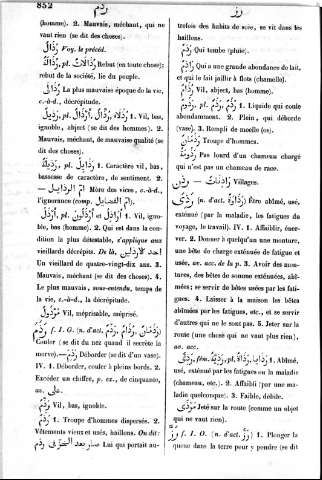 852
رذم
رز
(homme). 2. Mauvais, méchant, qui ne
vaut rien (se dit des choses).
رُذَالٌ Voy. le précéd.
رُذَالَةٌ, pl. رُذَالَاتٌ Rebut (en toute chose);
rebut de la société, lie du peuple.
La plus mauvaise époque de la vie,
c.-à-d., décrépitude.
رَذِيلٌ, pl. 1. Vil, bas,
ignoble, abject (se dit des hommes). 2.
Mauvais, méchant, de mauvaise qualité (se
dit des choses).
رَذِيلَةٌ, pl. رَذَائِلُ 1. Caractère vil, bas,
bassesse de caractère, de sentiment. 2.
— أم الرذايل Mère des vices, c.-à-d.,
l'ignorance (comp. أم الفضايل).
أَرْذَلُ, pl. أَرْذَلُونَ et أَرَاذِلُ 1. Vil, igno-
ble, bas (homme). 2. Qui est dans la con-
dition la plus détestable, s'applique aux
vieillards décrépits. De là, احد الارذلين
Un vieillard de quatre-vingt-dix ans. 3.
Mauvais, méchant (se dit des choses). 4.
Le plus mauvais, sous-entendu, temps de
la vie, c.-à-d., la décrépitude.
مَرْذُولٌ Vil, méprisable, méprisé.
رَذَمَ f. I. O. (n. d'act. رَذْمٌ, رَذَمَانٌ)
Couler (se dit du nez quand il secrète la
morve).— رَذِمَ Déborder (se dit d'un vase).
IV. 1. Déborder, couler à pleins bords. 2.
Excéder un chiffre, p. ex., de cinquante,
av. على.
رَذْمٌ Vil, bas, ignoble.
رُذْمٌ 1. Troupe d'hommes dispersés. 2.
Vêtements vieux et usés, haillons. On dit:
صار بعد الخز في رذم Lui qui portait au-
trefois des habits de soie, se vit dans les
haillons.
Qui tombe (pluie).
Qui a une grande abondance de lait,
et qui le fait jaillir à flots (chamelle).
رُذَامٌ Vil, abject, bas (homme).
رَذُومٌ, pl. رُذُمٌ 1. Liquide qui coule
abondamment. 2. Plein, qui déborde
(vase). 3. Rempli de moelle (os).
Troupe d'hommes.
Pas lourd d'un chameau chargé
qui n'est pas un chameau de race.
رذن — رَاذَنَاتٌ Villages.
رَذِيَ (n. d'act. رَذَاوَةٌ) Être abîmé, usé,
exténué (par la maladie, les fatigues du
voyage, le travail). IV. 1. Affaiblir, éner-
ver. 2. Donner à quelqu'un une monture,
une bête de charge exténuée de fatigue et
usée, av. acc. de la p. 3. Avoir des mon-
tures, des bêtes de somme exténuées, abî-
mées; se servir de bêtes usées par les fati-
gues. 4. Laisser à la maison les bêtes
abîmées par les fatigues, etc., et se servir
d'autres qui ne le sont pas. 5. Jeter sur la
route (une chose qui ne vaut plus rien),
av. acc.
رَذِيٌّ, fém. رَذِيَّةٌ, pl. رَذَايَا, رُذَاةٌ 1. Abîmé,
usé, exténué par les fatigues ou la maladie
(chameau, etc.). 2. Affaibli (par une ma-
ladie quelconque). 3. Faible, débile.
مُرْذًى Jeté sur la route (comme un objet
qui ne vaut rien).
رَزَّ f. I. O. (n. d'act. رَزٌّ) 1. Plonger la
queue dans la terre pour y pondre (se dit